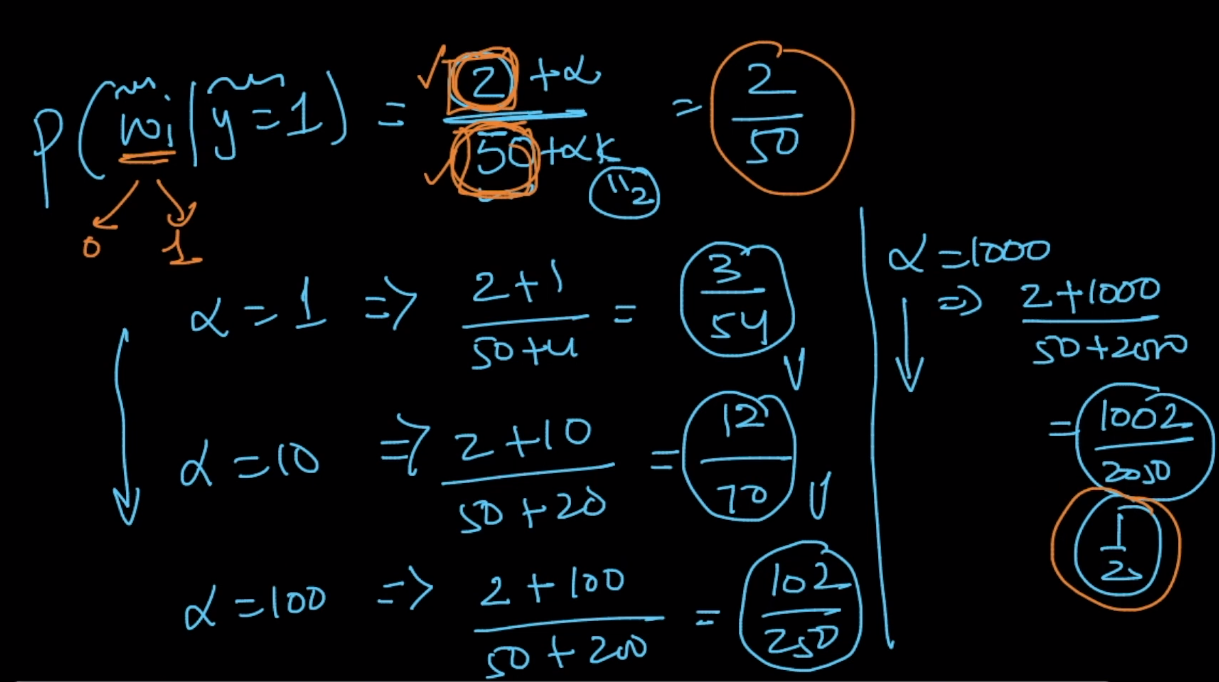 P(wi|y=1) = (2+α)/(50+αk) = 2/50
"2
0 1
α=1 => (2+1)/(50+4) = 3/54
α=10 => (2+10)/(50+20) = 12/70
α=100 => (2+100)/(50+200) = 102/250
α=1000
=> (2+1000)/(50+2000)
= 1002/2050
1/2